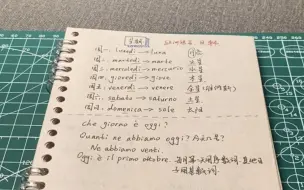 星期
周一: lunedì → luna 月亮
周二: martedì → marte 火星
周三: mercoledì → mercurio 水星
周四: giovedì → giove 木星
周五: venerdì → venere 金星
周六: sabato → saturno 土星
周日: domenica → sole 太阳
Che giorno è oggi?
Quanti ne abbiamo oggi? 今天几号?
Ne abbiamo venti.
Oggi è il primo ottobre. 每月第一天用序数词, 其他日
子用基数词.